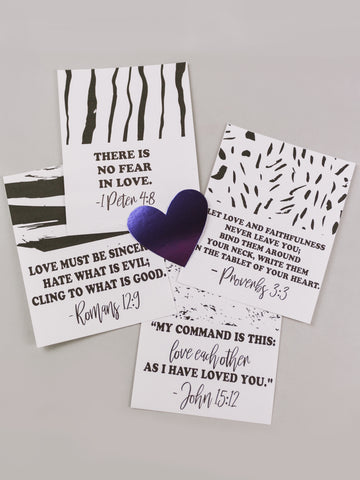 THERE IS
NO FEAR
IN LOVE.
- 1 Peter 4:8
LOVE MUST BE SINCER
HATE WHAT IS EVIL;
CLING TO WHAT IS GOOD.
- Romans 12:9
LET LOVE AND FAITHFULNESS
NEVER LEAVE YOU;
BIND THEM AROUND
YOUR NECK, WRITE THEM
N THE TABLET OF YOUR HEART.
- Proverbs 3:3
"MY COMMAND IS THIS:
love each other
AS I HAVE LOVED YOU."
- John 15:12